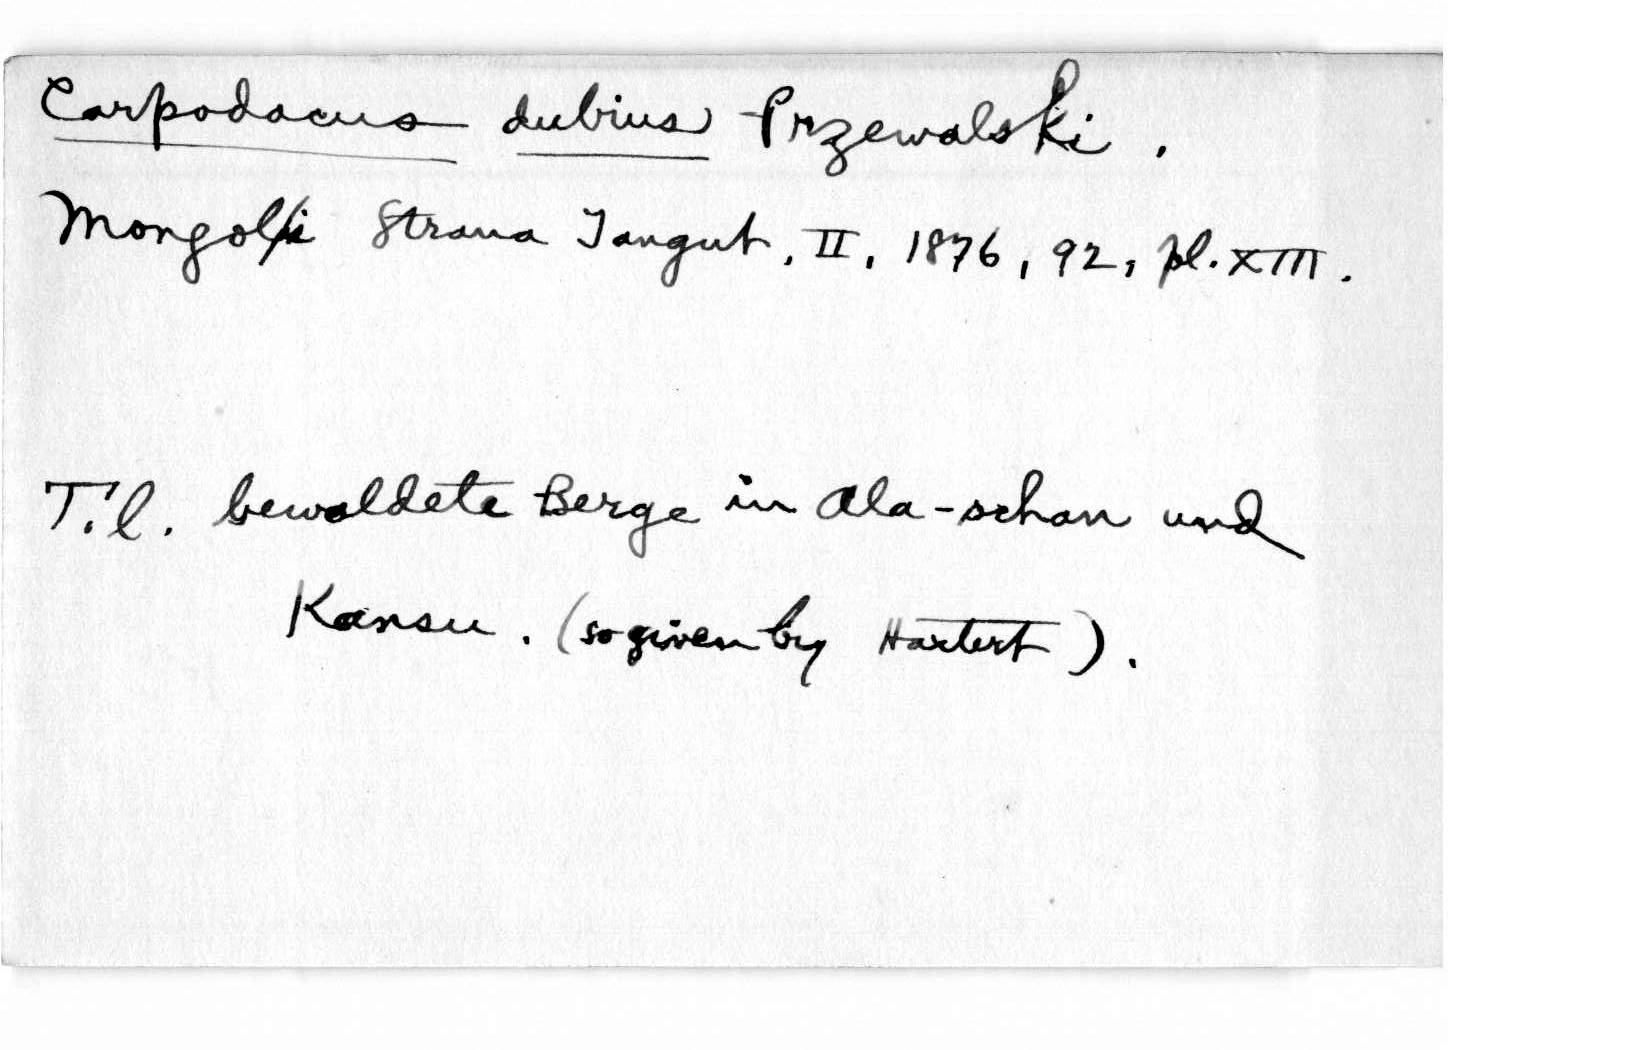 Carpodacus dubius Przewalski.
Mongoli Strana Tangut, II, 1876, 92, pl. XIII.
T.l. bewaldete Berge in Ala-schan und
Kansu. (so given by Hartert).